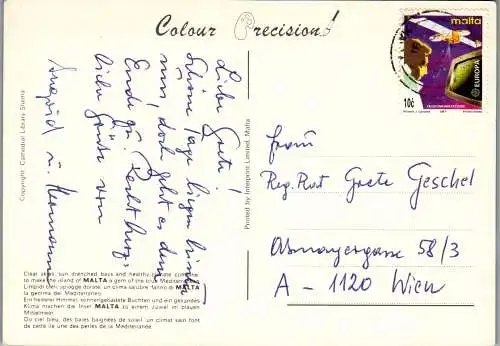 Colour Precision!
malta
EUROPA
10c
Liebe Grete!
Schöne Tage liegen hinter
uns, doch geht es dem
Ende zu. Recht herz-
liche Grüße von
Ingrid u. Hermann
Copyright: Cathedral Library Sliema
Printed by Interprint Limited, Malta
Frau
Reg. Rat Grete Geschel
Assmayergasse 58/3
A - 1120 Wien
Clear skies, sun drenched bays and healthy climate combine
to make the island of MALTA a gem of the blue Mediterranean.
Limpidi cieli, spiagge dorate, un clima salubre fanno di MALTA
la gemma del Mediterraneo.
Ein heiterer Himmel, sonnengebadete Buchten und ein gesundes
Klima machen die Insel MALTA zu einem Juwel im blauen
Mittelmeer.
Du ciel bleu, des baies baignées de soleil, un climat sain font
de cette île une des perles de la Méditerranée.